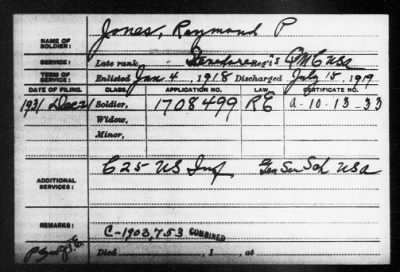 Jones, Raymond P
NAME OF SOLDIER:
SERVICE: Late rank, Regi's QMC USA
TERM OF SERVICE: Enlisted Jan 4, 1918 Discharged July 15, 1919
DATE OF FILING. CLASS. APPLICATION NO. LAW. CERTIFICATE NO.
1931 Dec 21 Soldier, 1708499 RE A-10-13-33
Widow,
Minor,
ADDITIONAL SERVICES: C 25 US Inf Gen Ser Sch USA
REMARKS: C-1903,753 COMBINED
Died , 1 , at